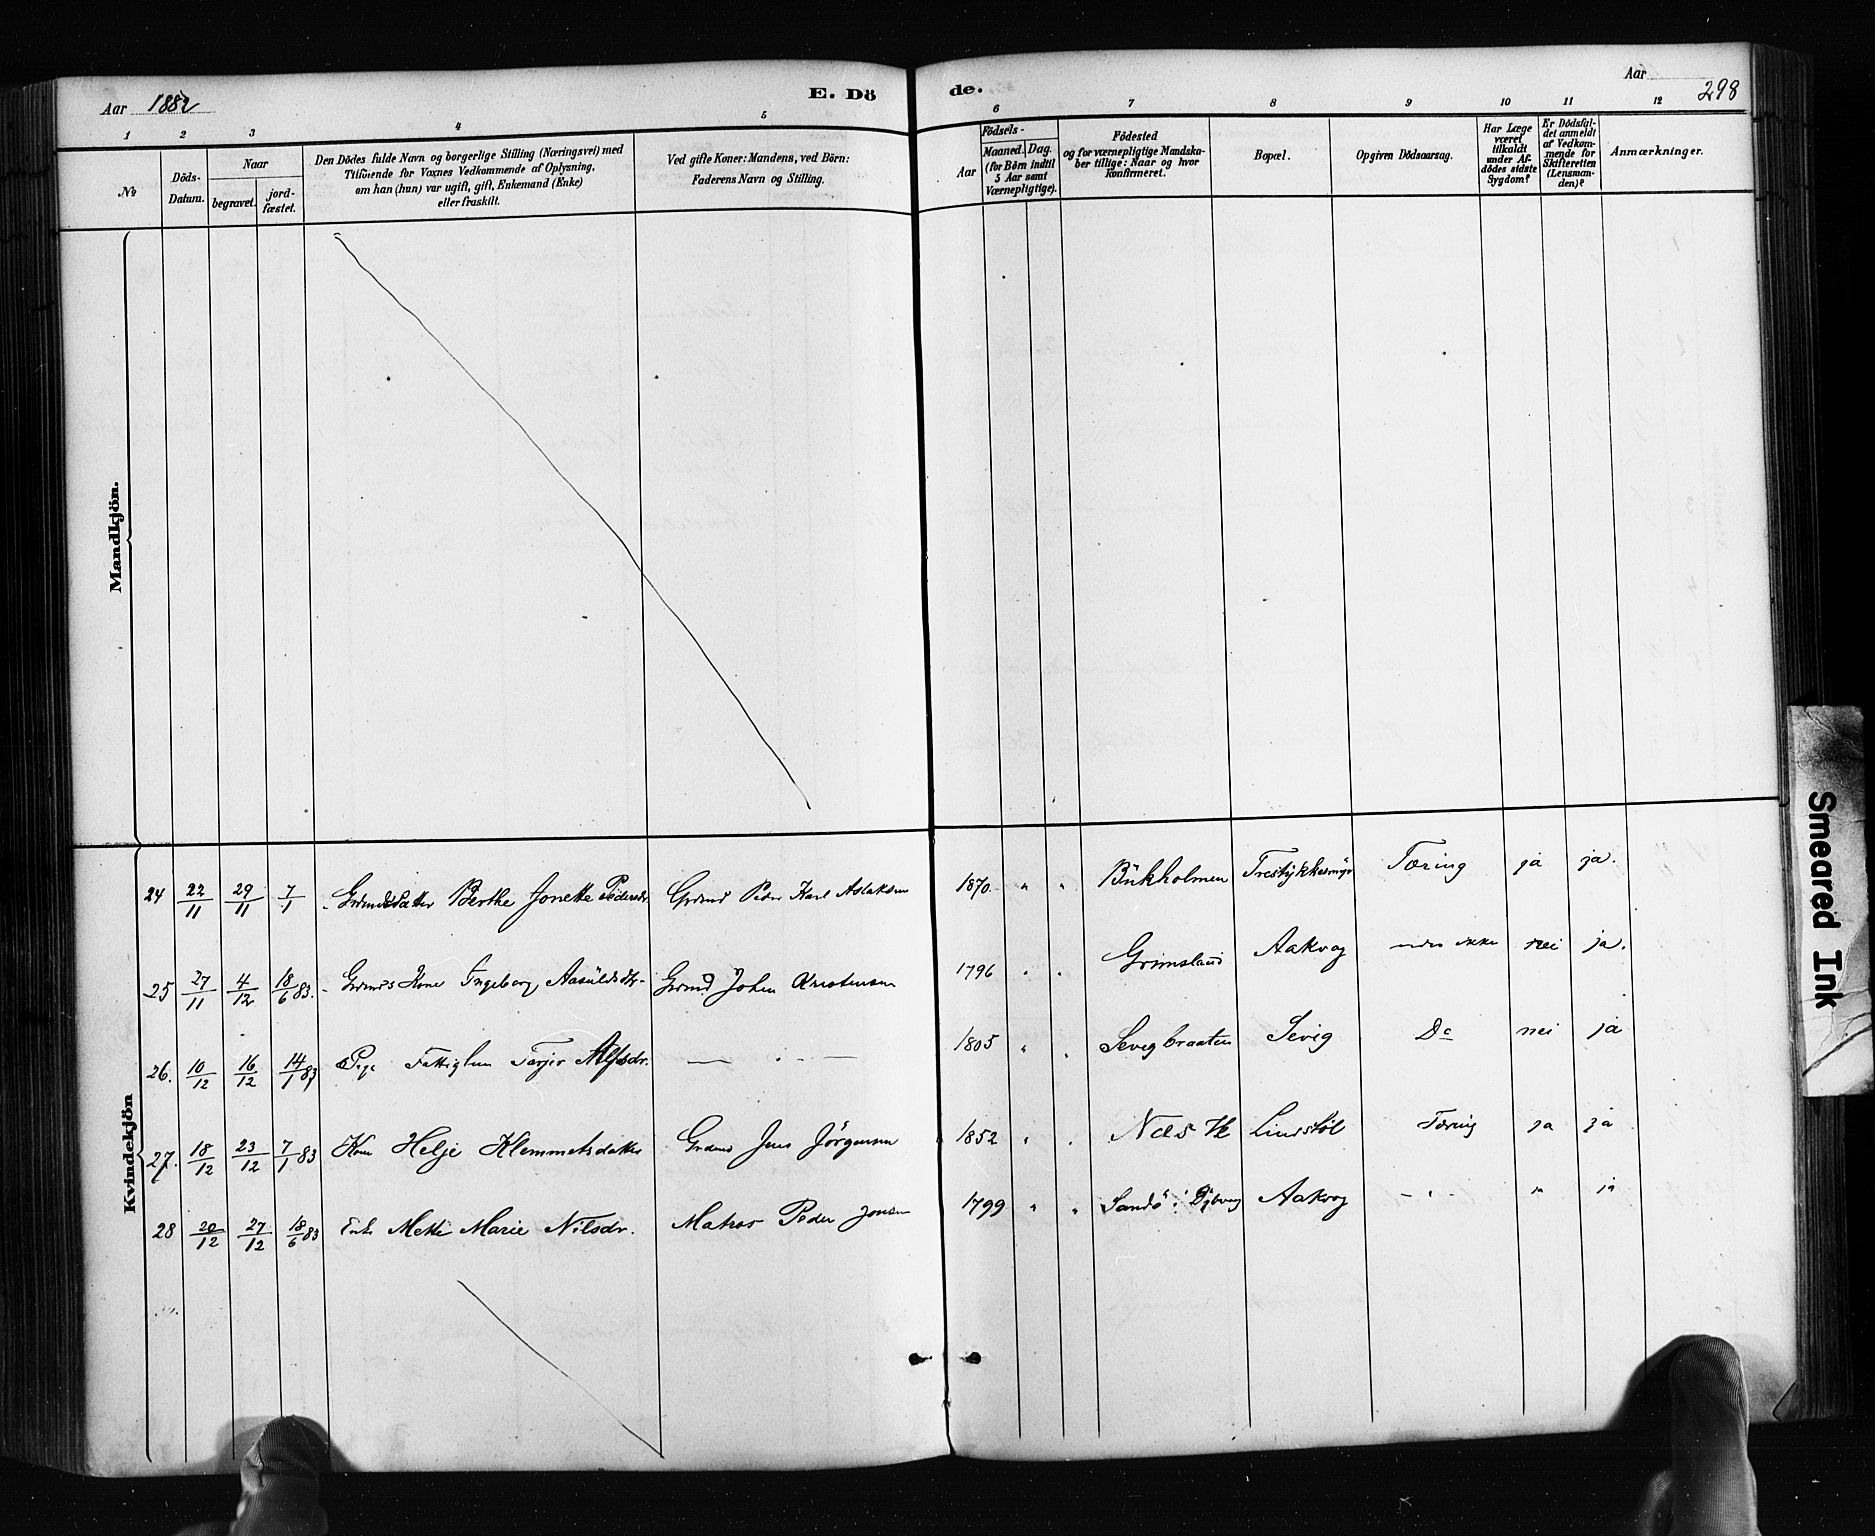 Aar 1882 E. Dö de. Aar 298
1 2 3 4 5 6 7 8 9 10 11 12
No
Döds-Datum.
Naar
begravet.
jord-fæstet.
Den Dödes fulde Navn og borgerlige Stilling (Næringsvei) med
Tilföiende for Voxnes Vedkommende af Oplysning,
om han (hun) var ugift, gift, Enkemand (Enke)
eller fraskilt.
Ved gifte Koner: Mandens, ved Börn:
Faderens Navn og Stilling.
Födsels-
Aar
Maaned. Dag.
(for Börn indtil
5 Aar samt
Værnepligtige).
Födested
og for værnepligtige Mandska-
ber tillige: Naar og hvor
konfirmeret.
Bopæl.
Opgiven Dödsaarsag.
Har Læge
været
tilkaldt
under Af-
dödes sidste
Sygdom?
Er Dödsfal-
det anmeldt
af Vedkom-
mende for
Skifteretten
(Lensman-
den)?
Anmærkninger.
Mandkjön.
Kvindekjön
24 22/11 29/11 7/1 Berthe Jonette Pedersdr Grdmd Peder Karl Aslaksen 1870 " " Bükholmen Tæring ja ja.
25 27/11 4/12 18/6 83. Grdmds Kone Ingeborg Aasüldsdtr. Grdmd John Kristensen 1796 " " Grimsland Aakvog ikke nei ja.
26. 10/12 16/12 14/1 83 Pige Fattiglem Tarjer Alfsdr. — " — 1805 " " Sevigbraaten Sevig Do nei ja
27. 18/12 23/12 7/1 83 Kone Helje Klemmetsdatter Grdmd Jens Jörgensen 1852 " " Næs Vk Lindstöl Tæring ja ja
28 20/12 27/12 18/6 83 Enke Mette Marie Nilsdr. Matros Peder Jonsen 1799 " " Sandö i Dybvog Aakvog — " — " ja
Smeared Ink